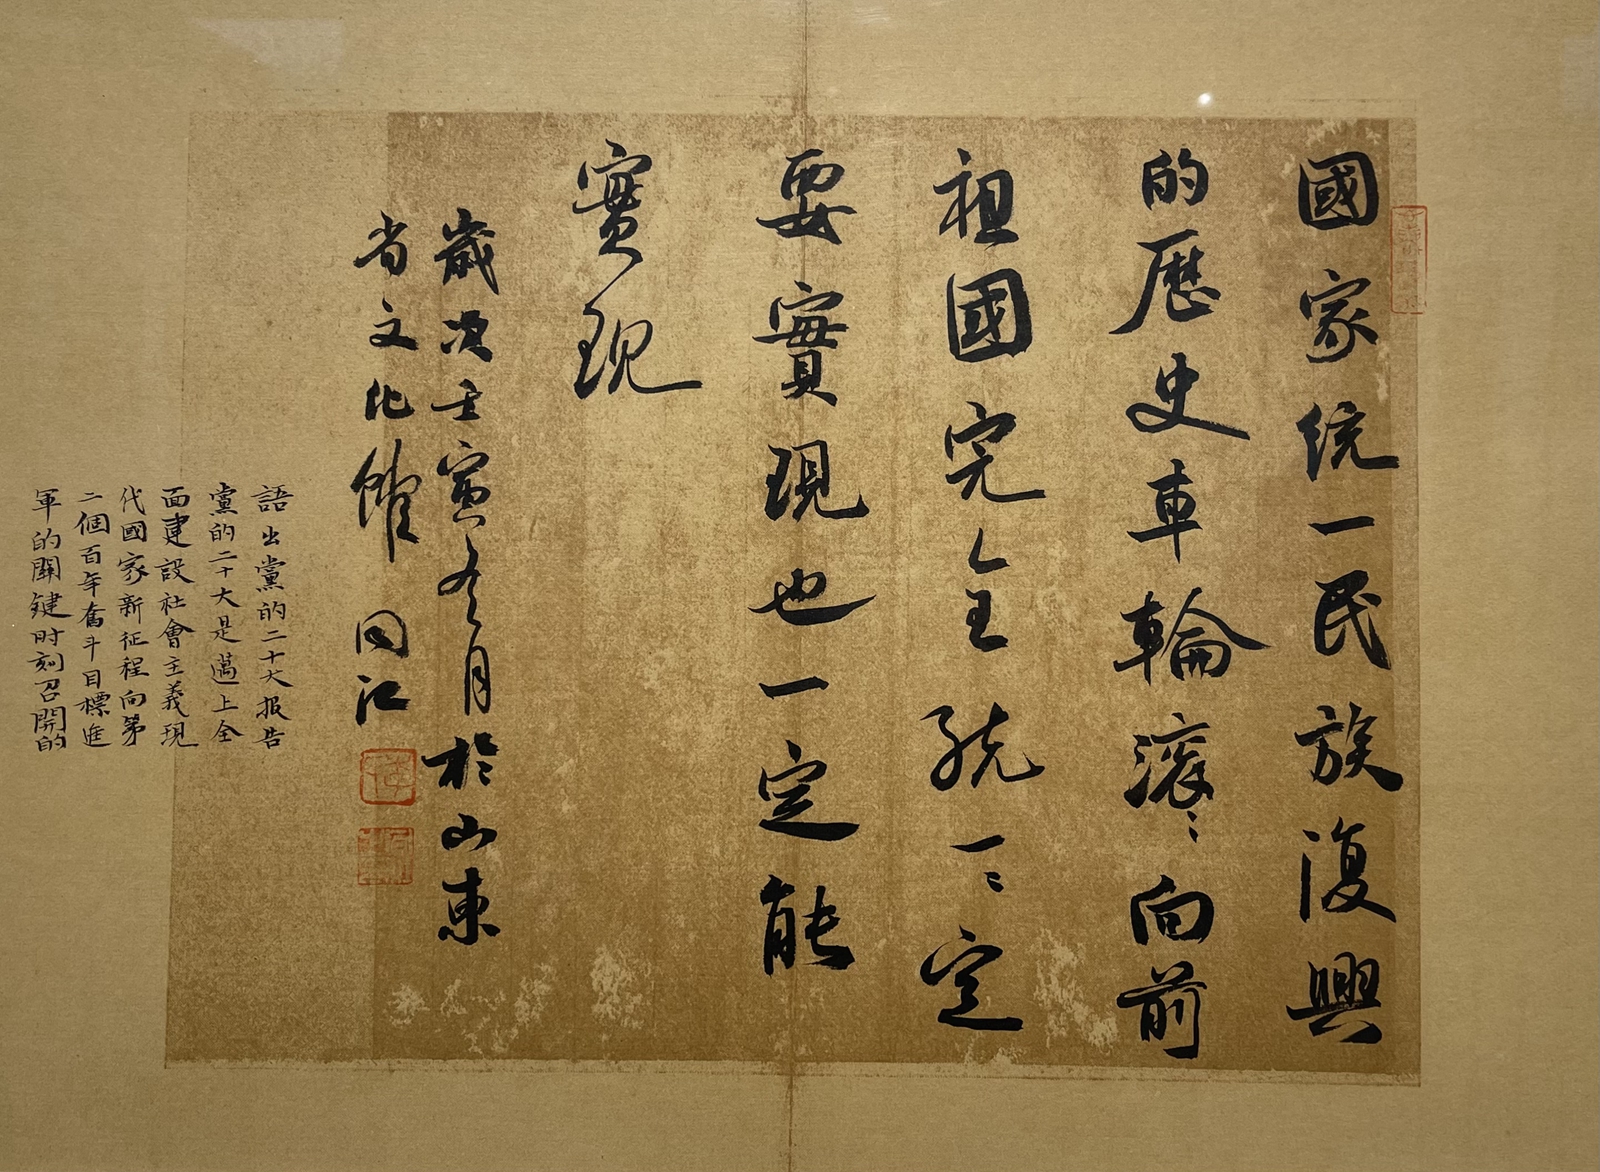 國家統一民族復興
的歷史車輪滾〻向前
祖國完全統一〻定
要實現也一定能
實現
歲次壬寅冬月於山東
省文化館 同江
語出黨的二十大报告
黨的二十大是邁上全
面建設社會主義現
代國家新征程向第
二個百年奮斗目標進
軍的關鍵时刻召開的